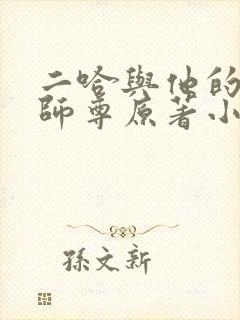 二哈與他的
師尊原著小
孫文新